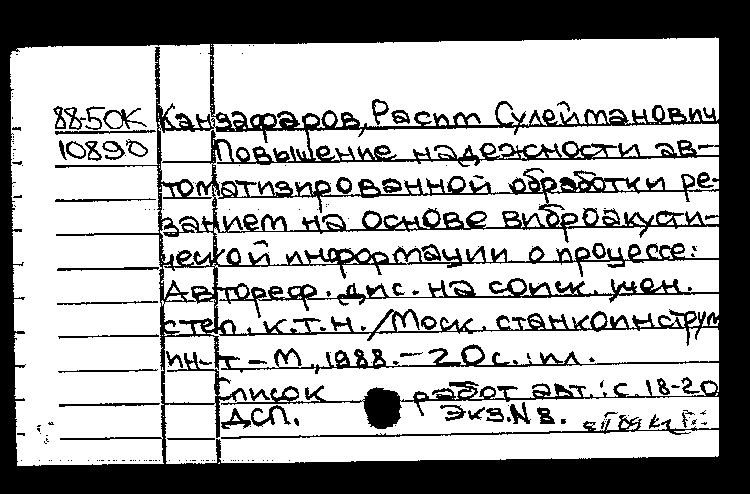 88-5ОК Канзафаров, Расит Сулейманович
10890 Повышение надежности ав-
томатизированной обработки ре-
занием на основе виброакусти-
ческой информации о процессе:
Автореф. дис. на соиск. учен.
степ. к.т.н. /Моск. станкоинструм
ин-т. - М., 1988. - 20 с.: ил.
Список работ авт.: с. 18-20
ДСП. Экз. N 8.